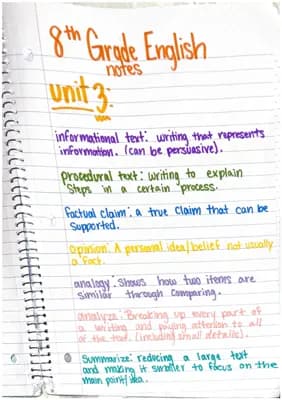 8th Grade English
notes
unit 3:
informational text: writing that represents
information. (can be persuasive).
procedural text: writing to explain
steps in a certain process.
factual claim: a true claim that can be
supported.
opinion: A personal idea/belief not usually
a fact.
analogy: shows how two items are
similar through comparing.
analyze: Breaking up every part of
a writing and paying attention to all
of the text. (including small details).
Summarize: reducing a large text
and making it smaller to focus on the
main point/idea.